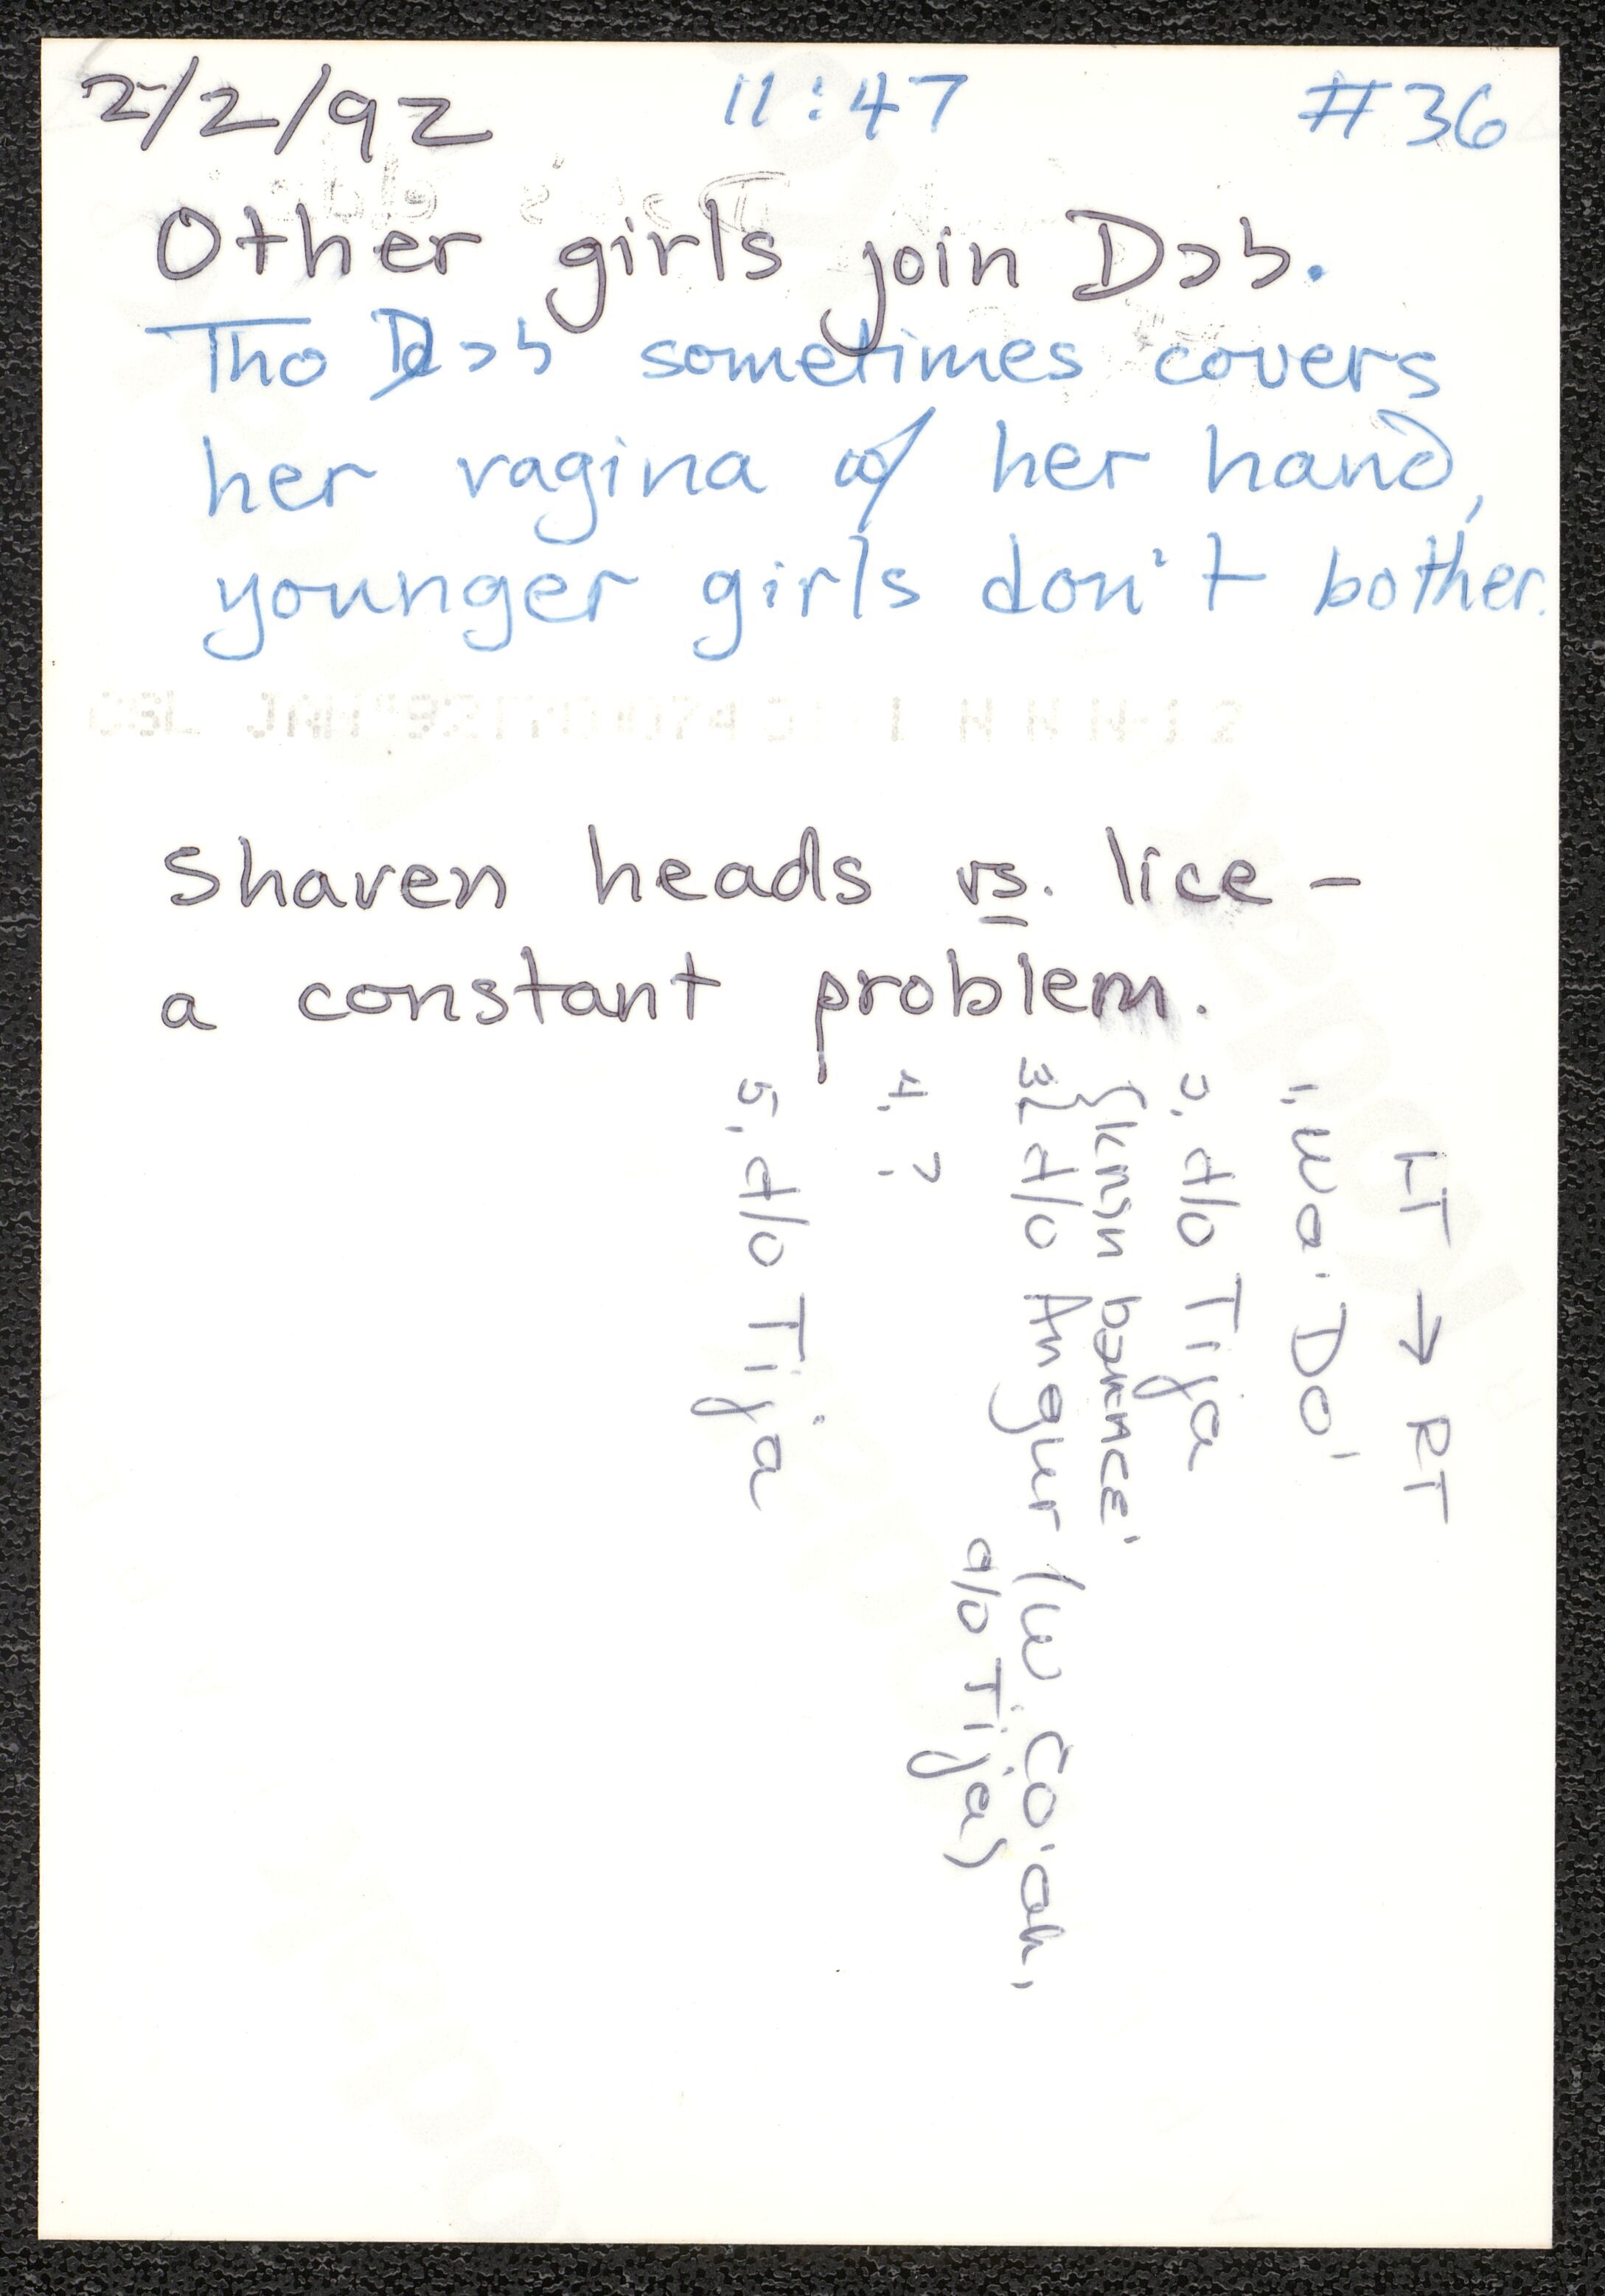 2/2/92 11:47 #36
Other girls join Dɔb.
Tho Dɔb sometimes covers
her vagina w/ her hand,
younger girls don't bother.
Shaven heads vs. lice –
a constant problem.
LT → RT
1, Wa' Do'
2, d/o Tija
3, d/o Angur (w. Co'ah,
a/o Tija)
4, ?
5, d/o Tija